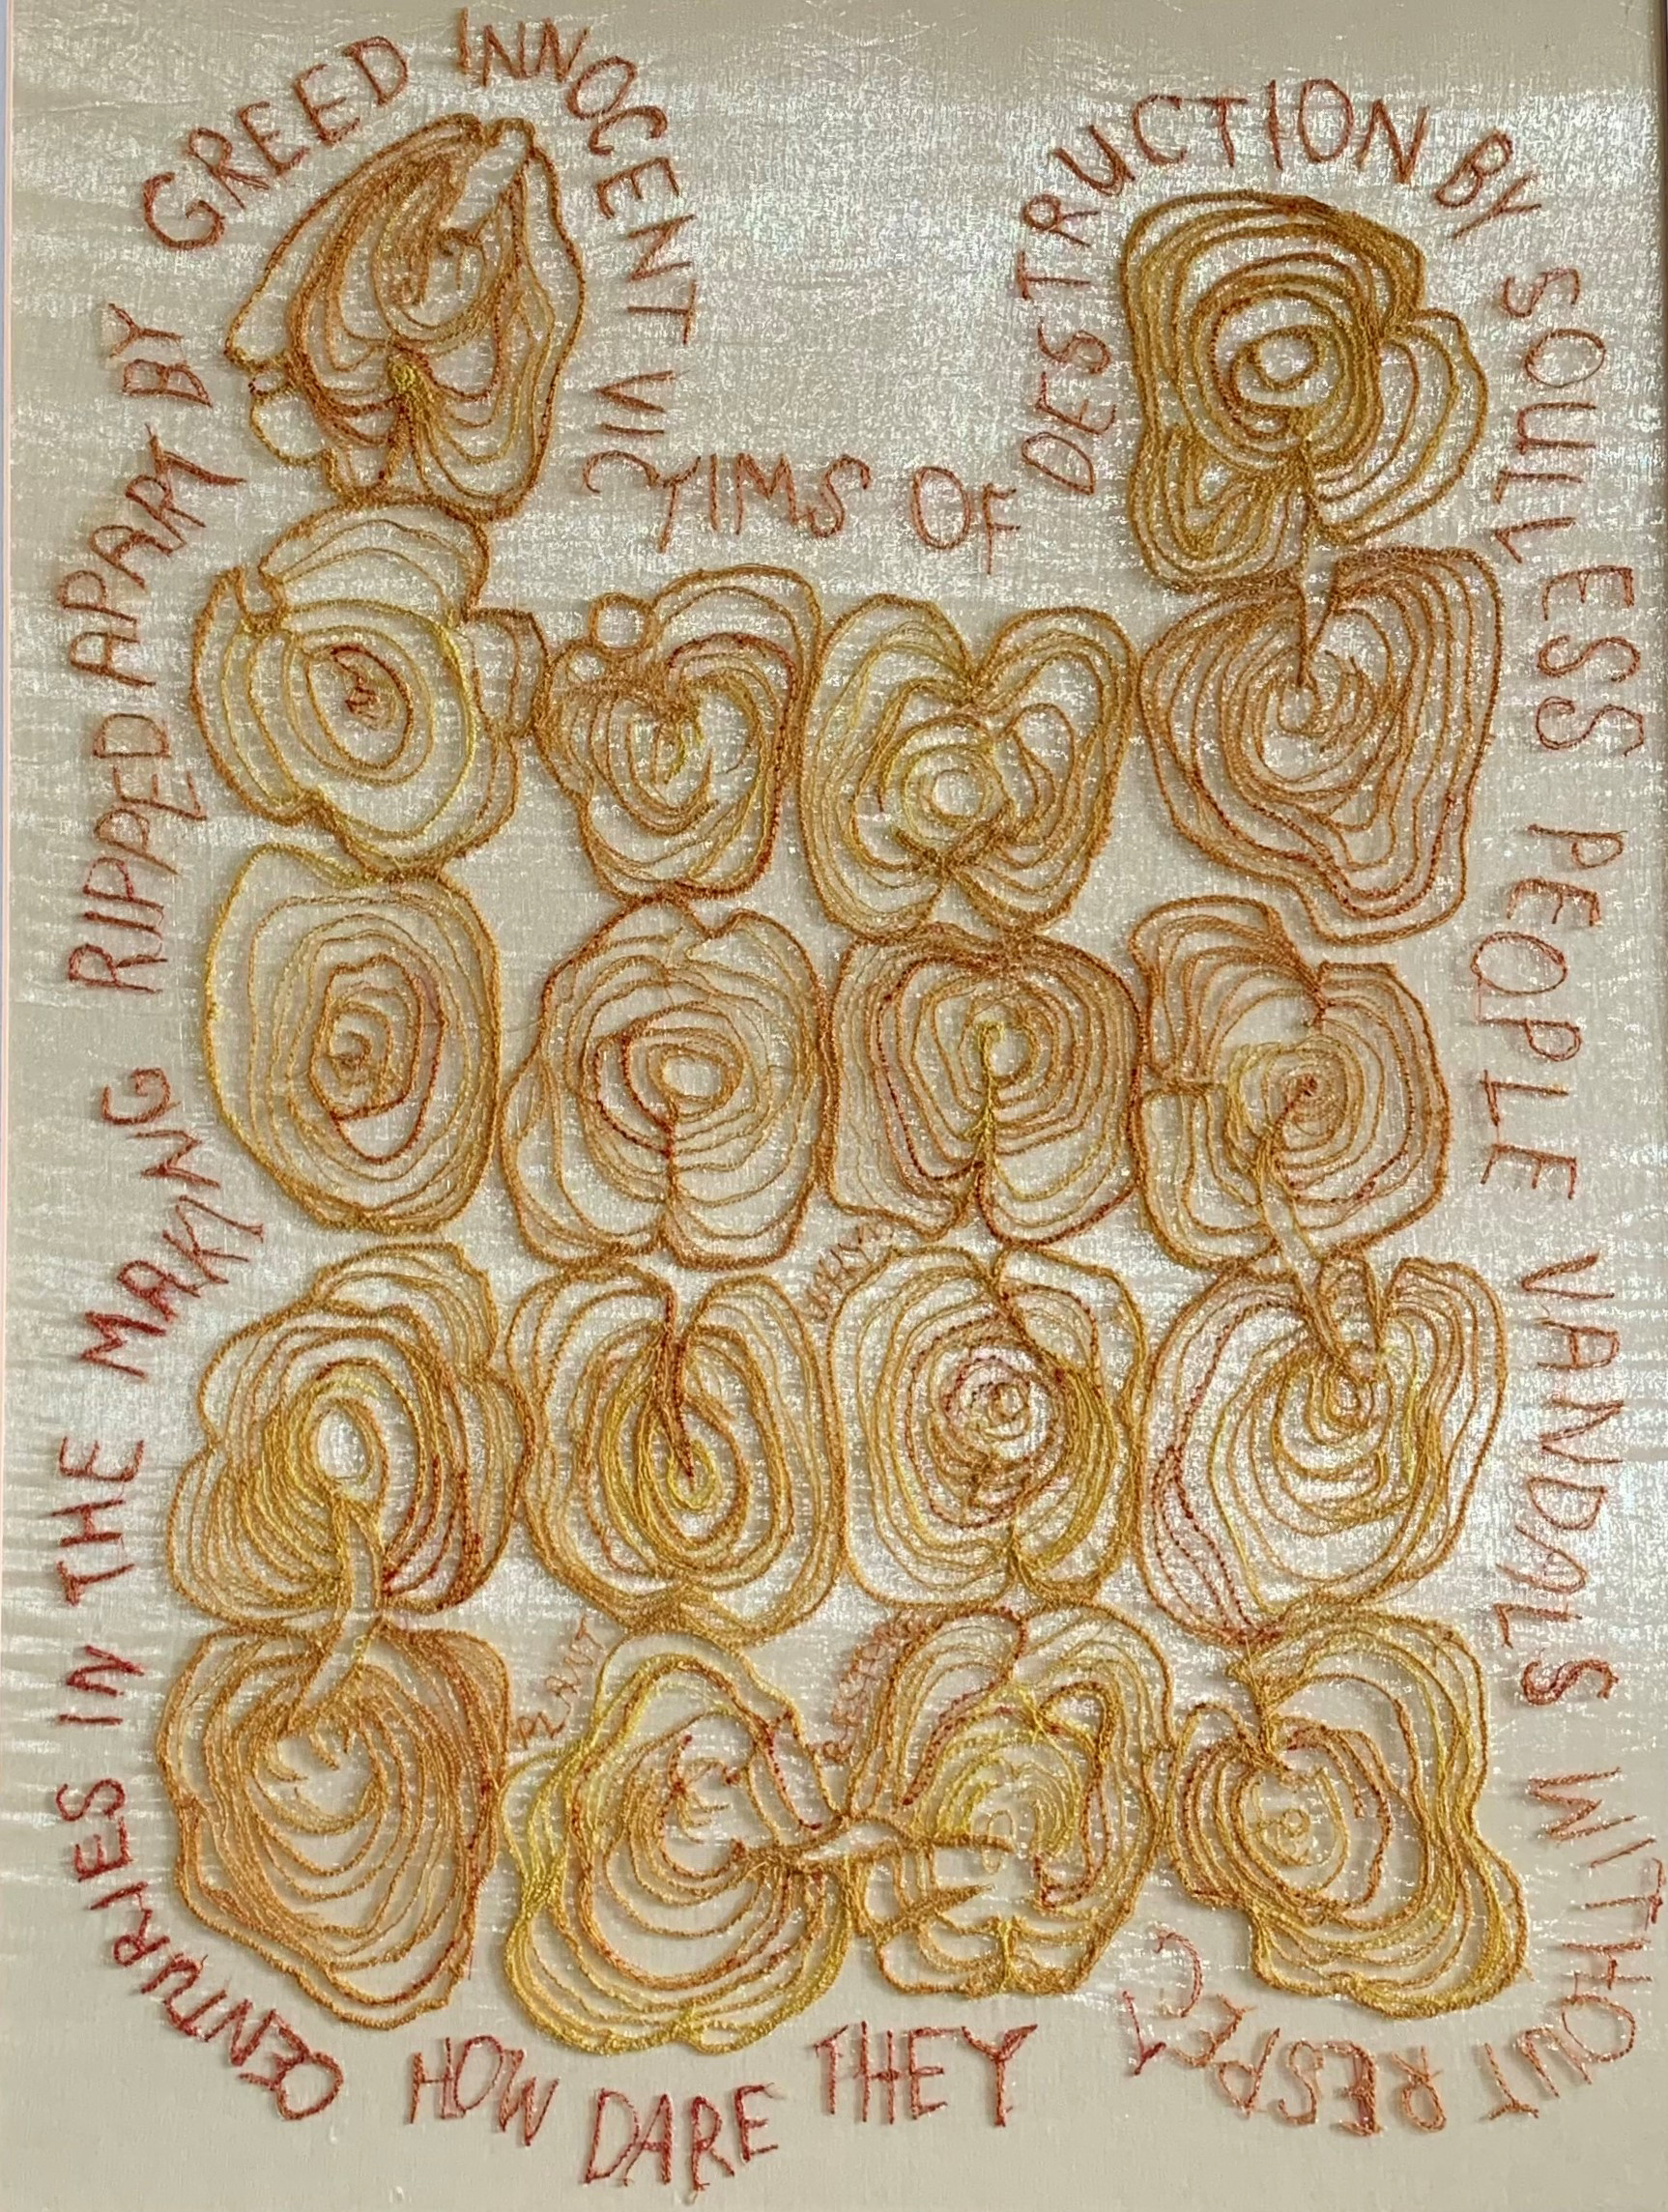 CENTURIES IN THE MAKING
RIPPED APART BY GREED
INNOCENT VICTIMS OF
DESTRUCTION BY SOULLESS PEOPLE
VANDALS WITHOUT RESPECT
HOW DARE THEY
PLANT
RESTORE